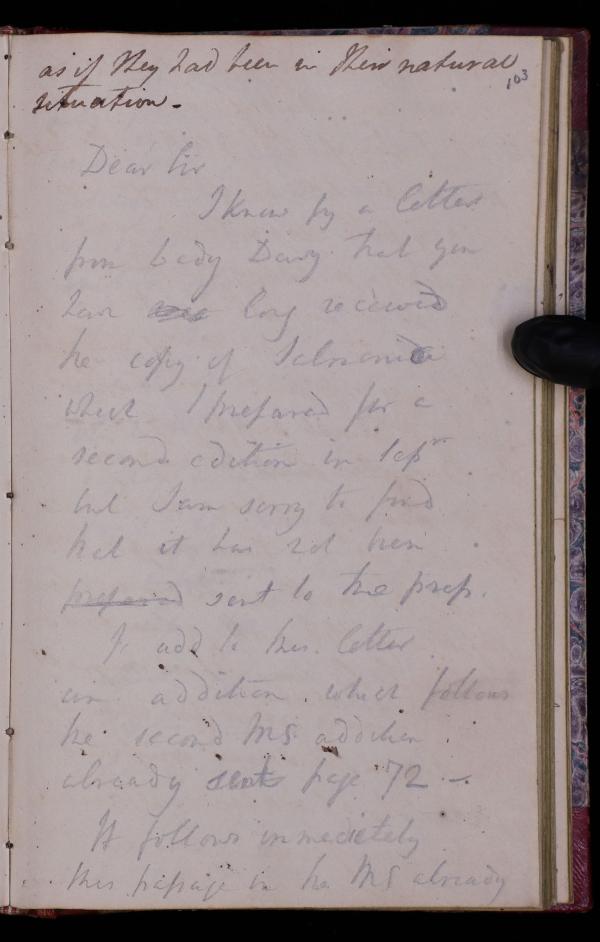 as if they had been in their natural
103
situation.
Dear Sir
I know by a letter
from Lady Davy that you
have long received
the copy of Salmonia
which I prepared for a
second edition in Septr
but I am sorry to find
that it has not been
prepared sent to the press.
I add to this letter
an addition which follows
the second MS addition
already sent page 72 –
It follows immediately
this passage in the MS already